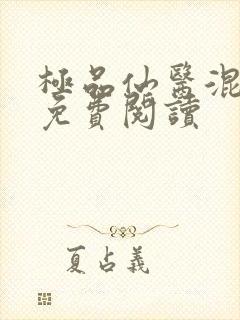 極品仙醫混
免費閱讀
夏占義